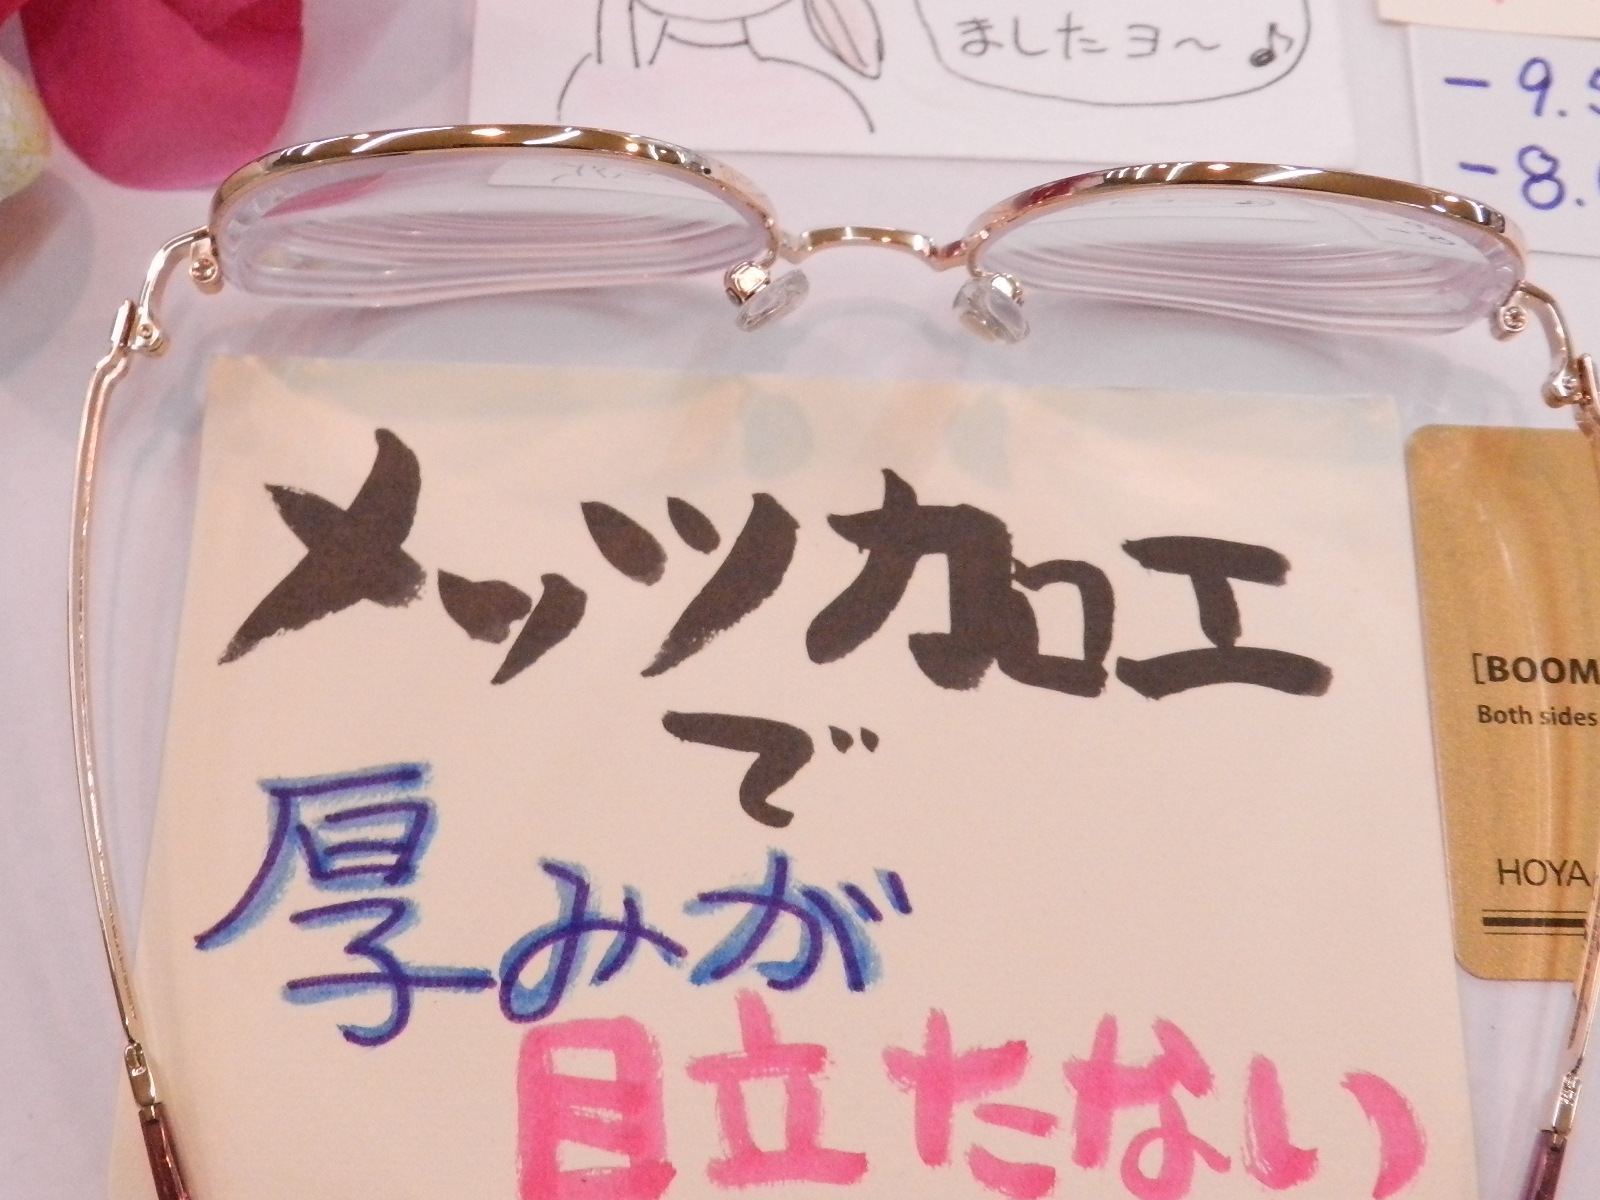 ましたヨ～♪
- 9.5
- 8.
メッツ加工
で
厚みが
目立たない
[BOOM
Both sides
HOYA